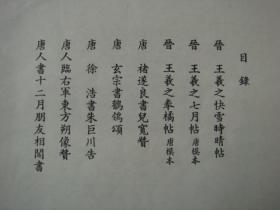 目錄
晉 王羲之快雪時晴帖
晉 王羲之七月帖 唐摸本
晉 王羲之奉橘帖 唐摸本
唐 褚遂良書兒寬贊
唐 玄宗書鶺鴒頌
唐 徐浩書朱巨川告
唐人臨右軍東方朔像贊
唐人書十二月朋友相聞書